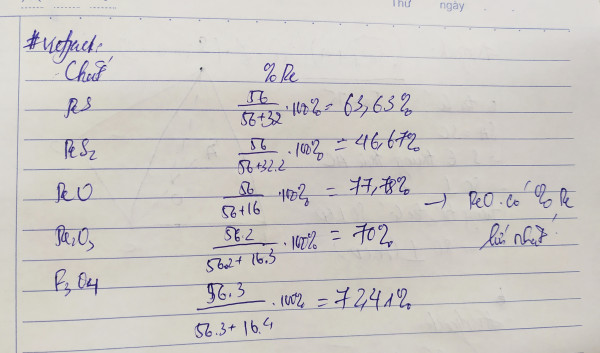 Thứ ngày
#vietjack:
Chất %Fe
FeS 56/(56+32) . 100% = 63,63%
FeS₂ 56/(56+32.2) . 100% = 46,67%
FeO 56/(56+16) . 100% = 77,78% → FeO có %Fe
lớn nhất
Fe₂O₃ 56.2/(56.2+16.3) . 100% = 70%
F₃O₄ 56.3/(56.3+16.4) . 100% = 72,41%